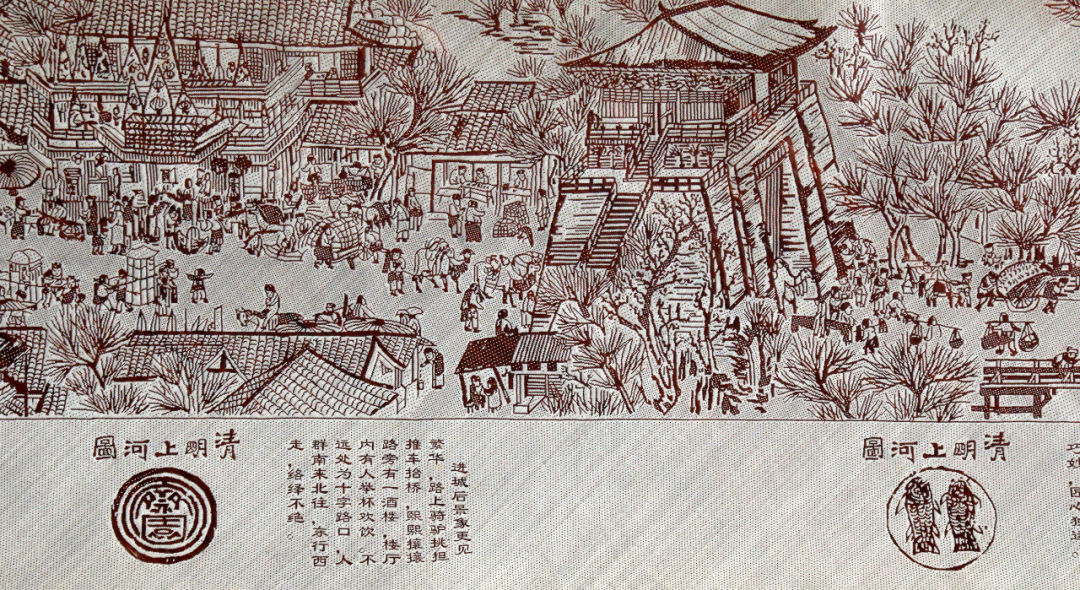 清明上河圖
进城后景象更见
繁华,路上骑驴挑担
推车抬桥,熙熙攘攘
路旁有一酒楼,楼厅
内有人举杯欢饮。不
远处为十字路口,人
群南来北往,东行西
走,络绎不绝。
清明上河圖